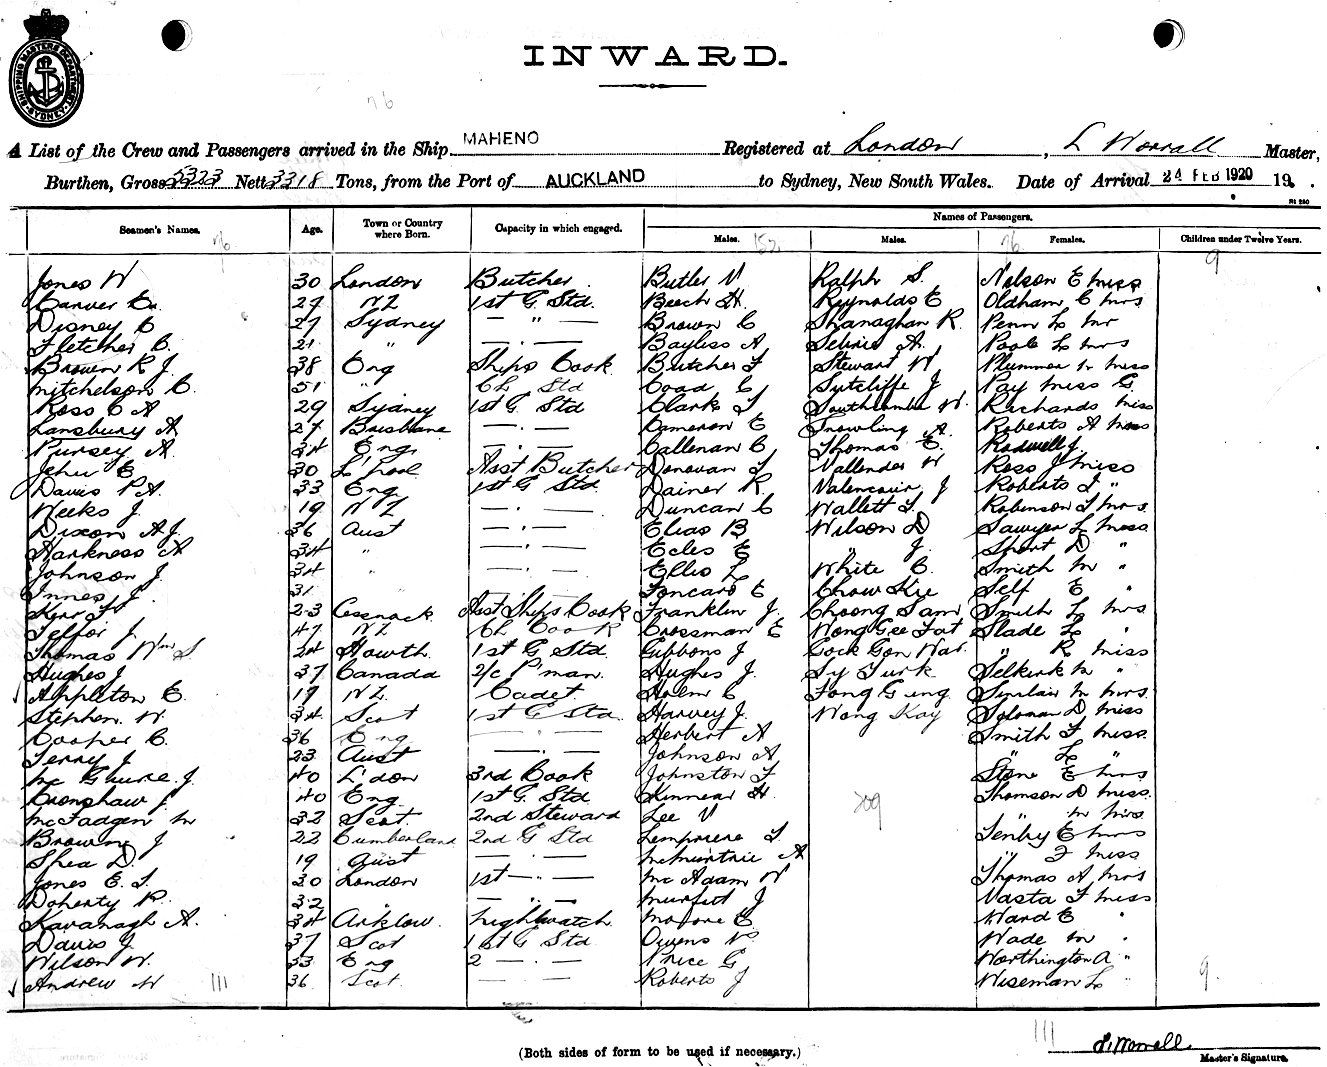 SHIPPING MASTERS DEPARTMENT SYDNEY
INWARD.
76
A List of the Crew and Passengers arrived in the Ship MAHENO Registered at London, L Worrall Master,
Burthen, Gross 5323 Nett 3318 Tons, from the Port of AUCKLAND to Sydney, New South Wales. Date of Arrival 24 FEB 1920 19 .
Names of Passengers.
Seamen's Names. 76 Age. Town or Country where Born. Capacity in which engaged. Males. 152 Males. 76 Females. Children under Twelve Years.
9
Jones W 30 London Butcher Butler V Ralph S. Nelson E miss
Carver E. 27 NZ 1st G Std. Beech H. Reynolds E Oldham C mrs
Disney C 27 Sydney — " — Brown C Shanaghan R. Penn L mr
Fletcher C. 21 " — . — Bayliss A Selvie A. Poole L mrs
Brown R J. 38 Eng Ships Cook Butcher F Stewart W Plummer m miss
Mitchelson C. 51 " Ch Std Coad C Sutcliffe J Pay miss G.
Ross C A 29 Sydney 1st G Std Clark T Southcombe W. Richards miss
Lansbury A 27 Brisbane — . — Cameron E Snowling A. Roberts A mrs
Pursey A. 34 Eng. — . — Callenan C Thomas E. Rodwell J.
Jehu E 30 L'pool Asst Butcher Donovan T Vallender W Ross J miss
Davis P A. 33 Eng 1st G Std. Dainer R. J Roberts J "
Weeks J. 19 NZ — . — Duncan C Wallett T. Robinson T mrs.
Dixon A J. 36 Aust — . — Elias B Wilson D Sawyer L miss
Harkness A 34 " — . — Ecles E " J. Short D "
Johnson J. 34 " — . — Ellis L White C. Smith m "
Innes J. 31 Foncard E Chow Kee Self E "
Kerr T 23 Cessnock Asst Ships Cook Franklin J. Choong Sam Smith L mrs
Telfor J. 47 NZ Ch Cook Crossman E Wong Gee Fat Slade L "
Thomas Wm S. 24 Howth 1st G Std. Gibbons J Gock Gon Wai " R miss
Hughes J 37 Canada 2/c P'man. Hughes J. Sy Turk Selkirk m "
Appleton E. 17 NZ. Cadet. Holm C Fong Geng Sinclair m mrs.
Stephen W. 34 Scot 1st G Std. Harvey J. Wong Kay Soloman D miss
Cooper C. 36 Eng — . — Herbert A Smith F miss.
Terry J 23 Aust — . — Johnson A " L "
Mc Guire J. 40 L'don 3rd Cook Johnston F Stone E mrs
Cronshaw J. 40 Eng. 1st G. Std. Kinnear H. 209 Thomson D miss.
McFadgen m 32 Scot. 2nd Steward Lee V " m mrs.
Browne J 22 Cumberland 2nd G Std Lempriere T. Tenby E mrs
Shea D. 19 Aust — . — McMurtrie A " F miss
Jones E. T. 30 London 1st — . — Mc Adam W Thomas A mrs
Doherty P. 32 " — " — Murfett J Vasta F miss
Kavanagh A. 34 Arklow. Nightwatch. Moore C. Ward E "
Davis J. 37 Scot 1st G Std. Owens N. Wade m "
Wilson W. 33 Eng 2 — . — Price G Worthington A "
Andrew W 111 36 Scot. — . — Roberts J Wiseman L " 9
111
(Both sides of form to be used if necessary.) L. Worrall.
Master's Signature.